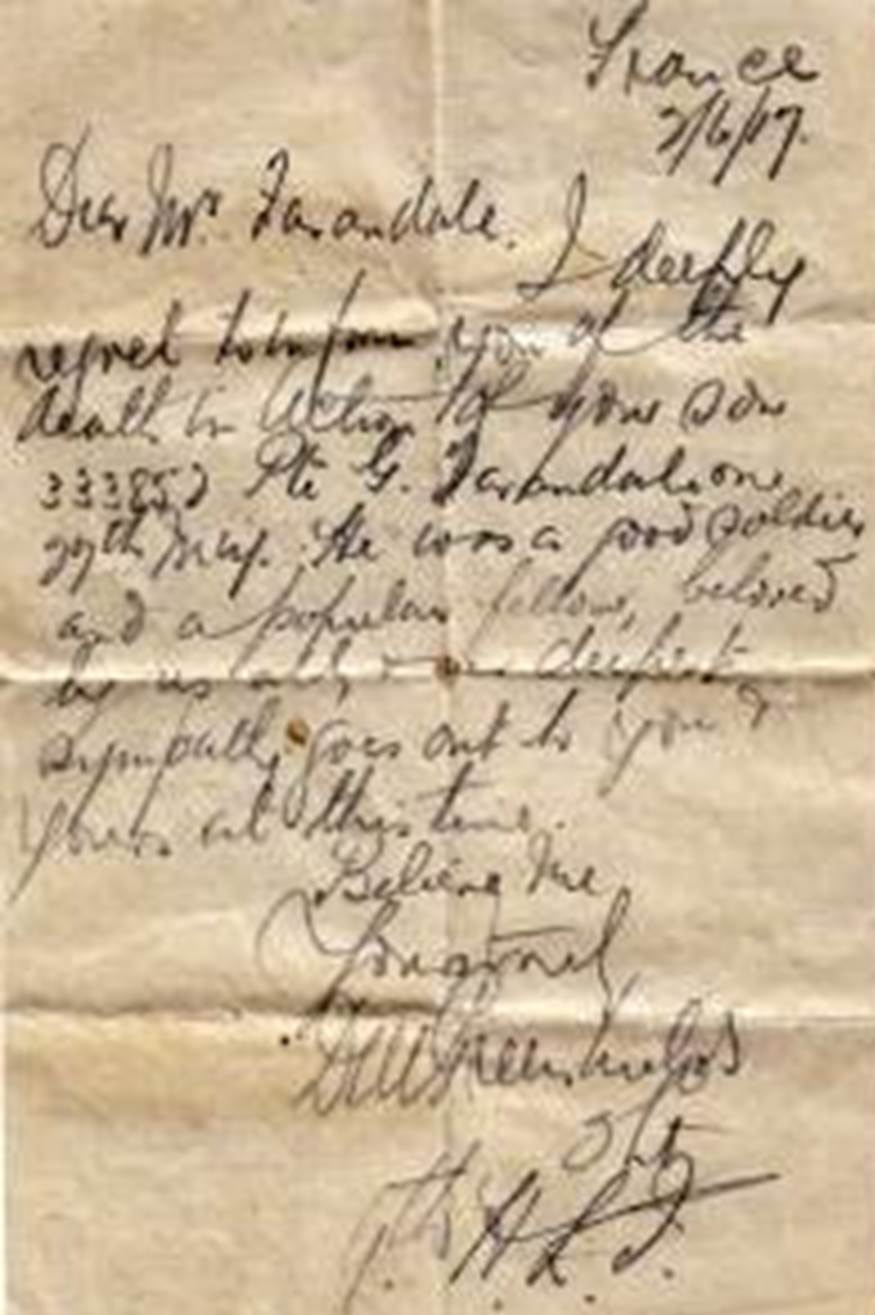 France
2/6/17.
Dear Mr. Farandale.
I deeply
regret to inform you of the
death in Action of your son
333852 Pte G. Farandale on
27th May. He was a good soldier
and a popular fellow, beloved
by us all, deepest
sympathy goes out to you &
yours at this time.
Believe Me
Yours truly
Lt
9th H.L.I.